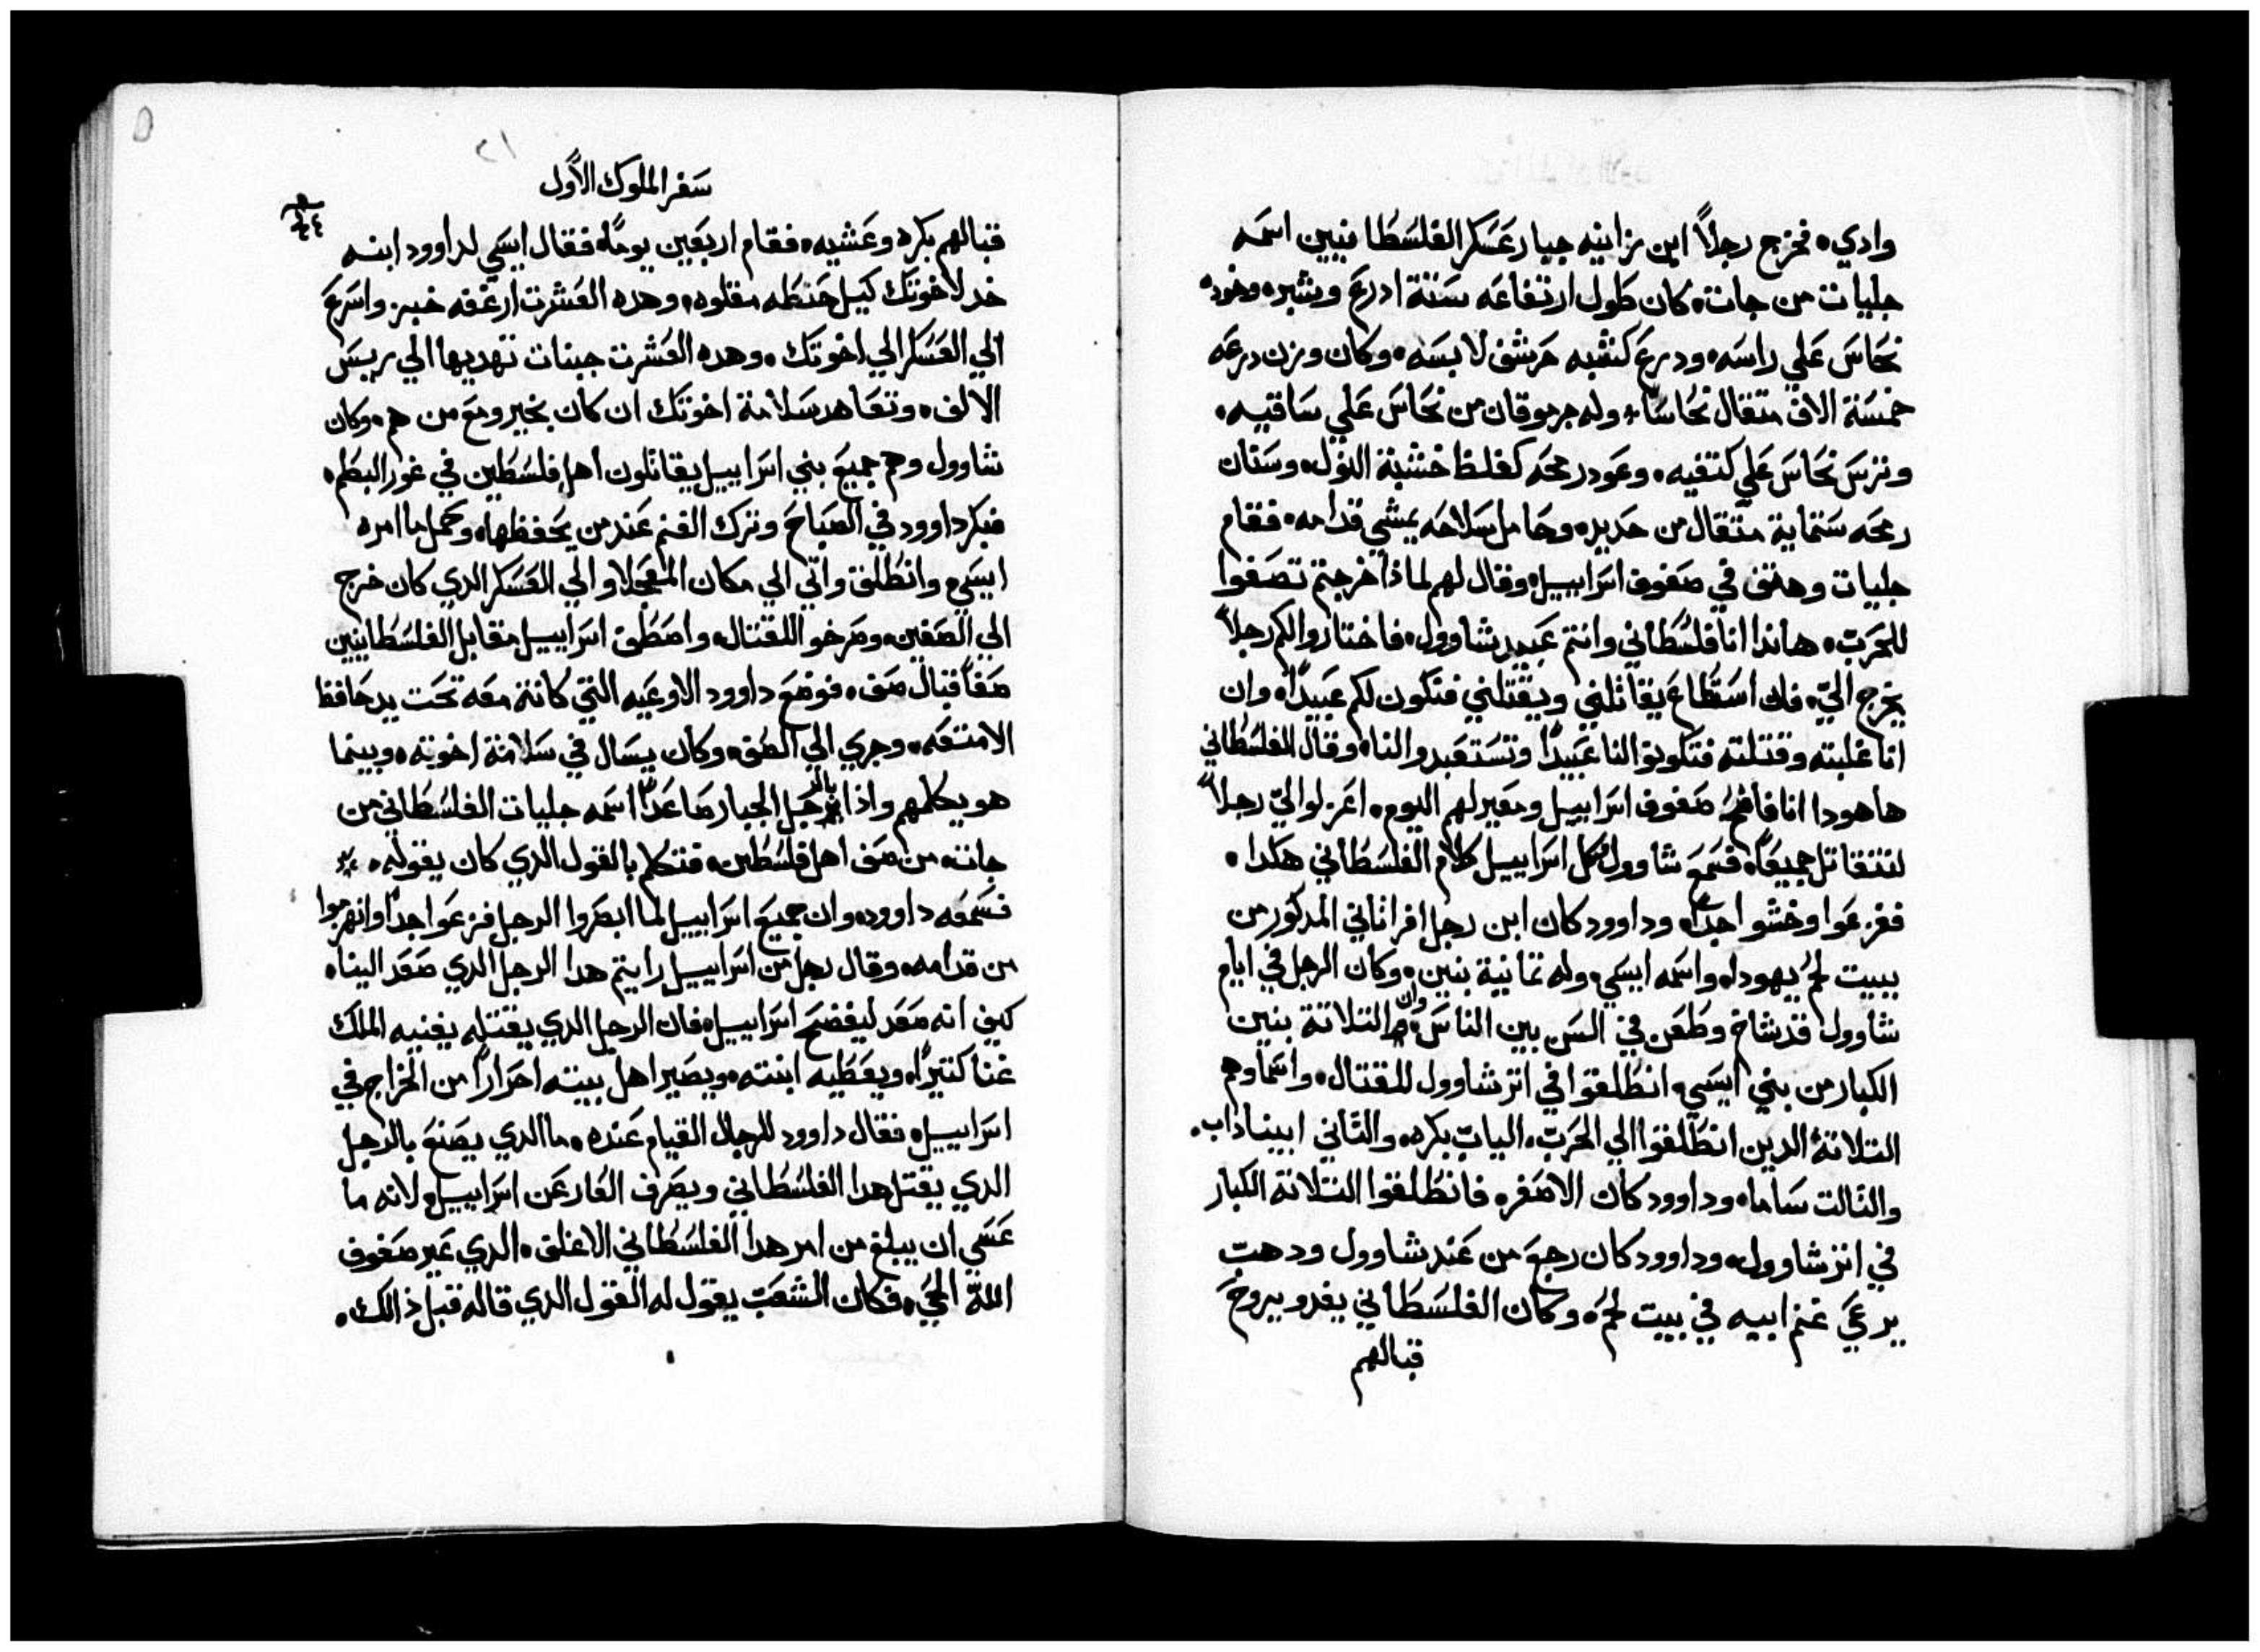 وادي. فخرج رجلاً ابن زانيه جبار عسكر الفلسطانيين اسمه
جليات من جات. كان طول ارتفاعه ستة ادرع وشبر. وخوده
نحاس علي راسه. ودرع كشبه حرشف لابسه. وكان وزن درعه
خمسة الاف متقال نحاسا. وله جرموقان من نحاس علي ساقيه.
وترس نحاس علي كتفيه. وعود رمحه كغلظ خشبة النول. وسنان
رمحه ستماية متقال من حديد. وحامل سلاحه يمشي قدامه. فقام
جليات وهتف في صفوف اسراييل. وقال لهم لماذا خرجتم تصفوا
للحرب. هاندا انا فلسطاني وانتم عبيد شاوول. فاختاروا لكم رجلاً
يخرج الي. فان استطاع يقاتلني ويقتلني فنكون لكم عبيداً. وان
انا غلبته وقتلته فتكونوا لنا عبيداً وتستعبدوا لنا. وقال الفلسطاني
هاهودا انا فاضح صفوف اسراييل ومعيرلهم اليوم. اعزلوا الي رجلاً
لنتقاتل جميعاً. فسمع شاوول وكل اسراييل كلام الفلسطاني هكدا.
ففزعوا وخشوا جداً. وداوود كان ابن رجل افراتاني المدكور من
بييت لحم يهودا. واسمه ايسي. وله تمانية بنين. وكان الرجل في ايام
شاوول قد شاخ وطعن في السن بين الناس. وان التلاتة بنين
الكبار من بني ايسي. انطلقوا في اتر شاوول للقتال. واسماوهم
التلاتة الدين انطلقوا الي الحرب. الياب بكره. والتاني ابيناداب.
والتالت ساما. وداوود كان الاصغر. فانطلقوا التلاتة الكبار
في اتر شاوول. وداوود كان رجع من عند شاوول ودهب
يرعي غنم ابيه في بييت لحم. وكان الفلسطاني يغدو يروح
قبالهم
سفر الملوك الأول
قبالهم بكره وعشيه. فقام اربعين يوماً. فقال ايسي لداوود ابنه
خد لاخوتك كيل حنطه مقلوه. وهده العشرت ارغفه خبز واسرع
الي العسكر الي اخوتك. وهده العشرت جبنات تهديها الي ريس
الالف. وتعاهد سلامة اخوتك ان كان بخير ومع من هم. وكان
شاوول وهم جميع بني اسراييل يقاتلون اهل فلسطين في غور البطم.
فبكر داوود في الصباح وترك الغنم عند من يحفظها. وحمل ما امره
ايسي وانطلق واتي الي مكان العجلا والي العسكر الدي كان خرج
الي الصفين. وصرخوا للقتال. واصطف اسراييل مقابل الفلسطانيين
صفاً قبال صف. فوضع داوود الاوعيه التي كانت معه تحت يد حافظ
الامتعه. وجري الي الصف. وكان يسال في سلامة اخوته. وبينما
هو يكلمهم واذا بالرجل الجبار صاعداً اسمه جليات الفلسطاني من
جات. من صف اهل فلسطين. فتكلم بالقول الدي كان يقوله.
فسمعه داوود. وان جميع اسراييل لما ابصروا الرجل فزعوا جداً وانهزموا
من قدامه. وقال رجل من اسراييل رايتم هدا الرجل الدي صعد الينا.
كيف انه صعد ليفضح اسراييل. فان الرجل الدي يقتله يغنيه الملك
غنا كتيراً. ويعطيه ابنته. ويصير اهل بيته احراراً من الخراج في
اسراييل. فقال داوود للرجال القيام عنده. ما الدي يصنع بالرجل
الدي يقتل هدا الفلسطاني ويصرف العار عن اسراييل. لانه ما
عسي ان يبلغ من امر هدا الفلسطاني الاغلق. الدي عير صفوف
الله الحي. فكان الشعب يقول له القول الدي قاله قبل ذالك.